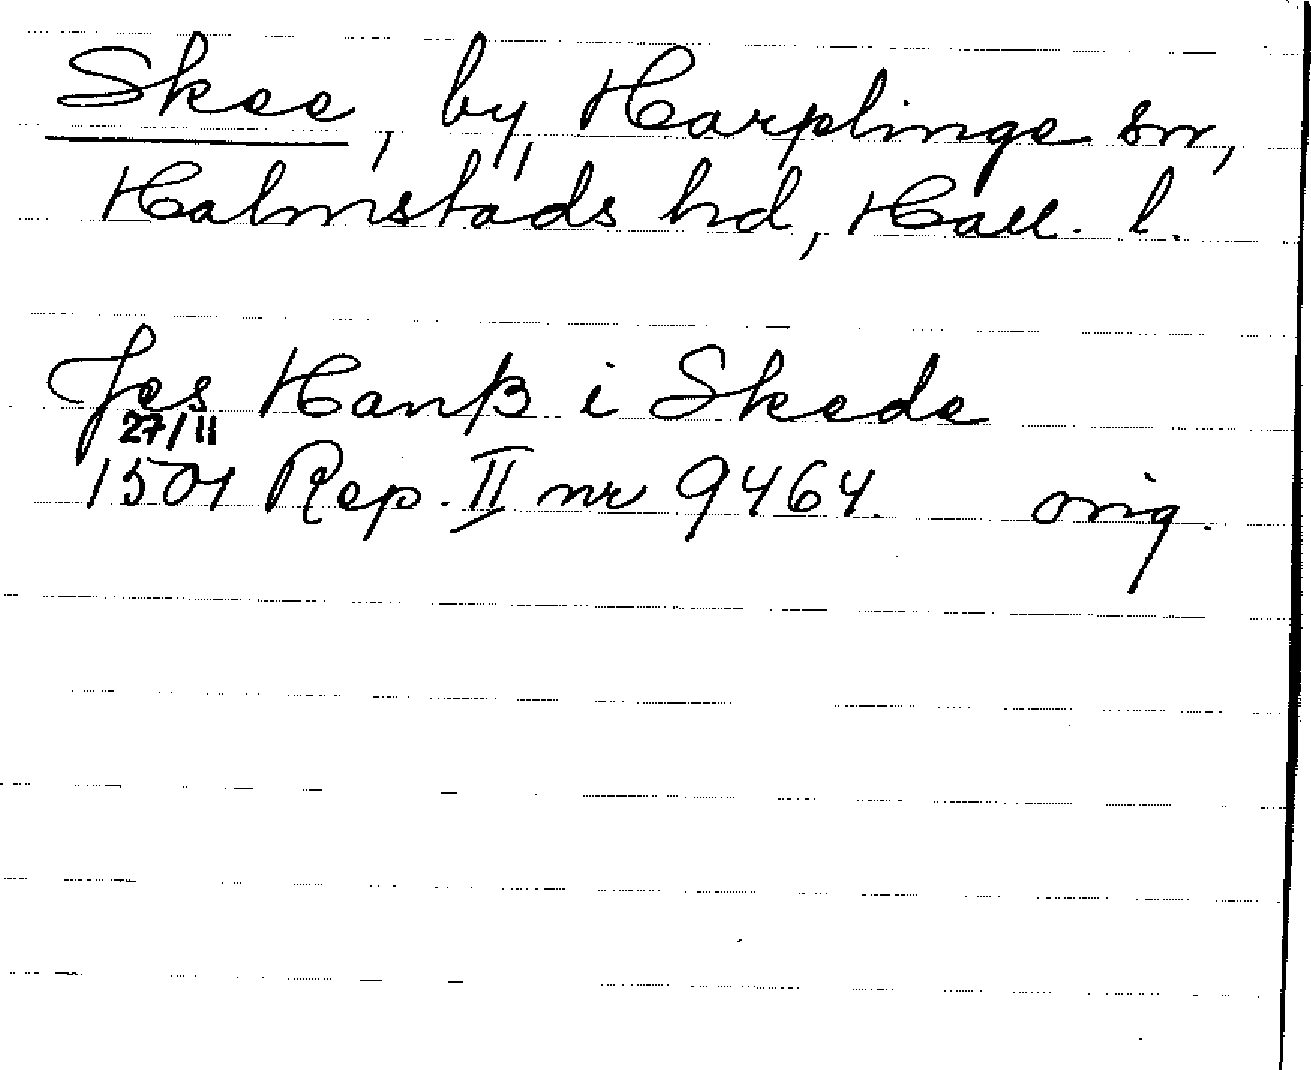 Skee, by, Harplinge sn,
Halmstads hd, Hall. l.
Jes Hanß i Skede
27/11
1501 Rep. II nr 9464. orig.